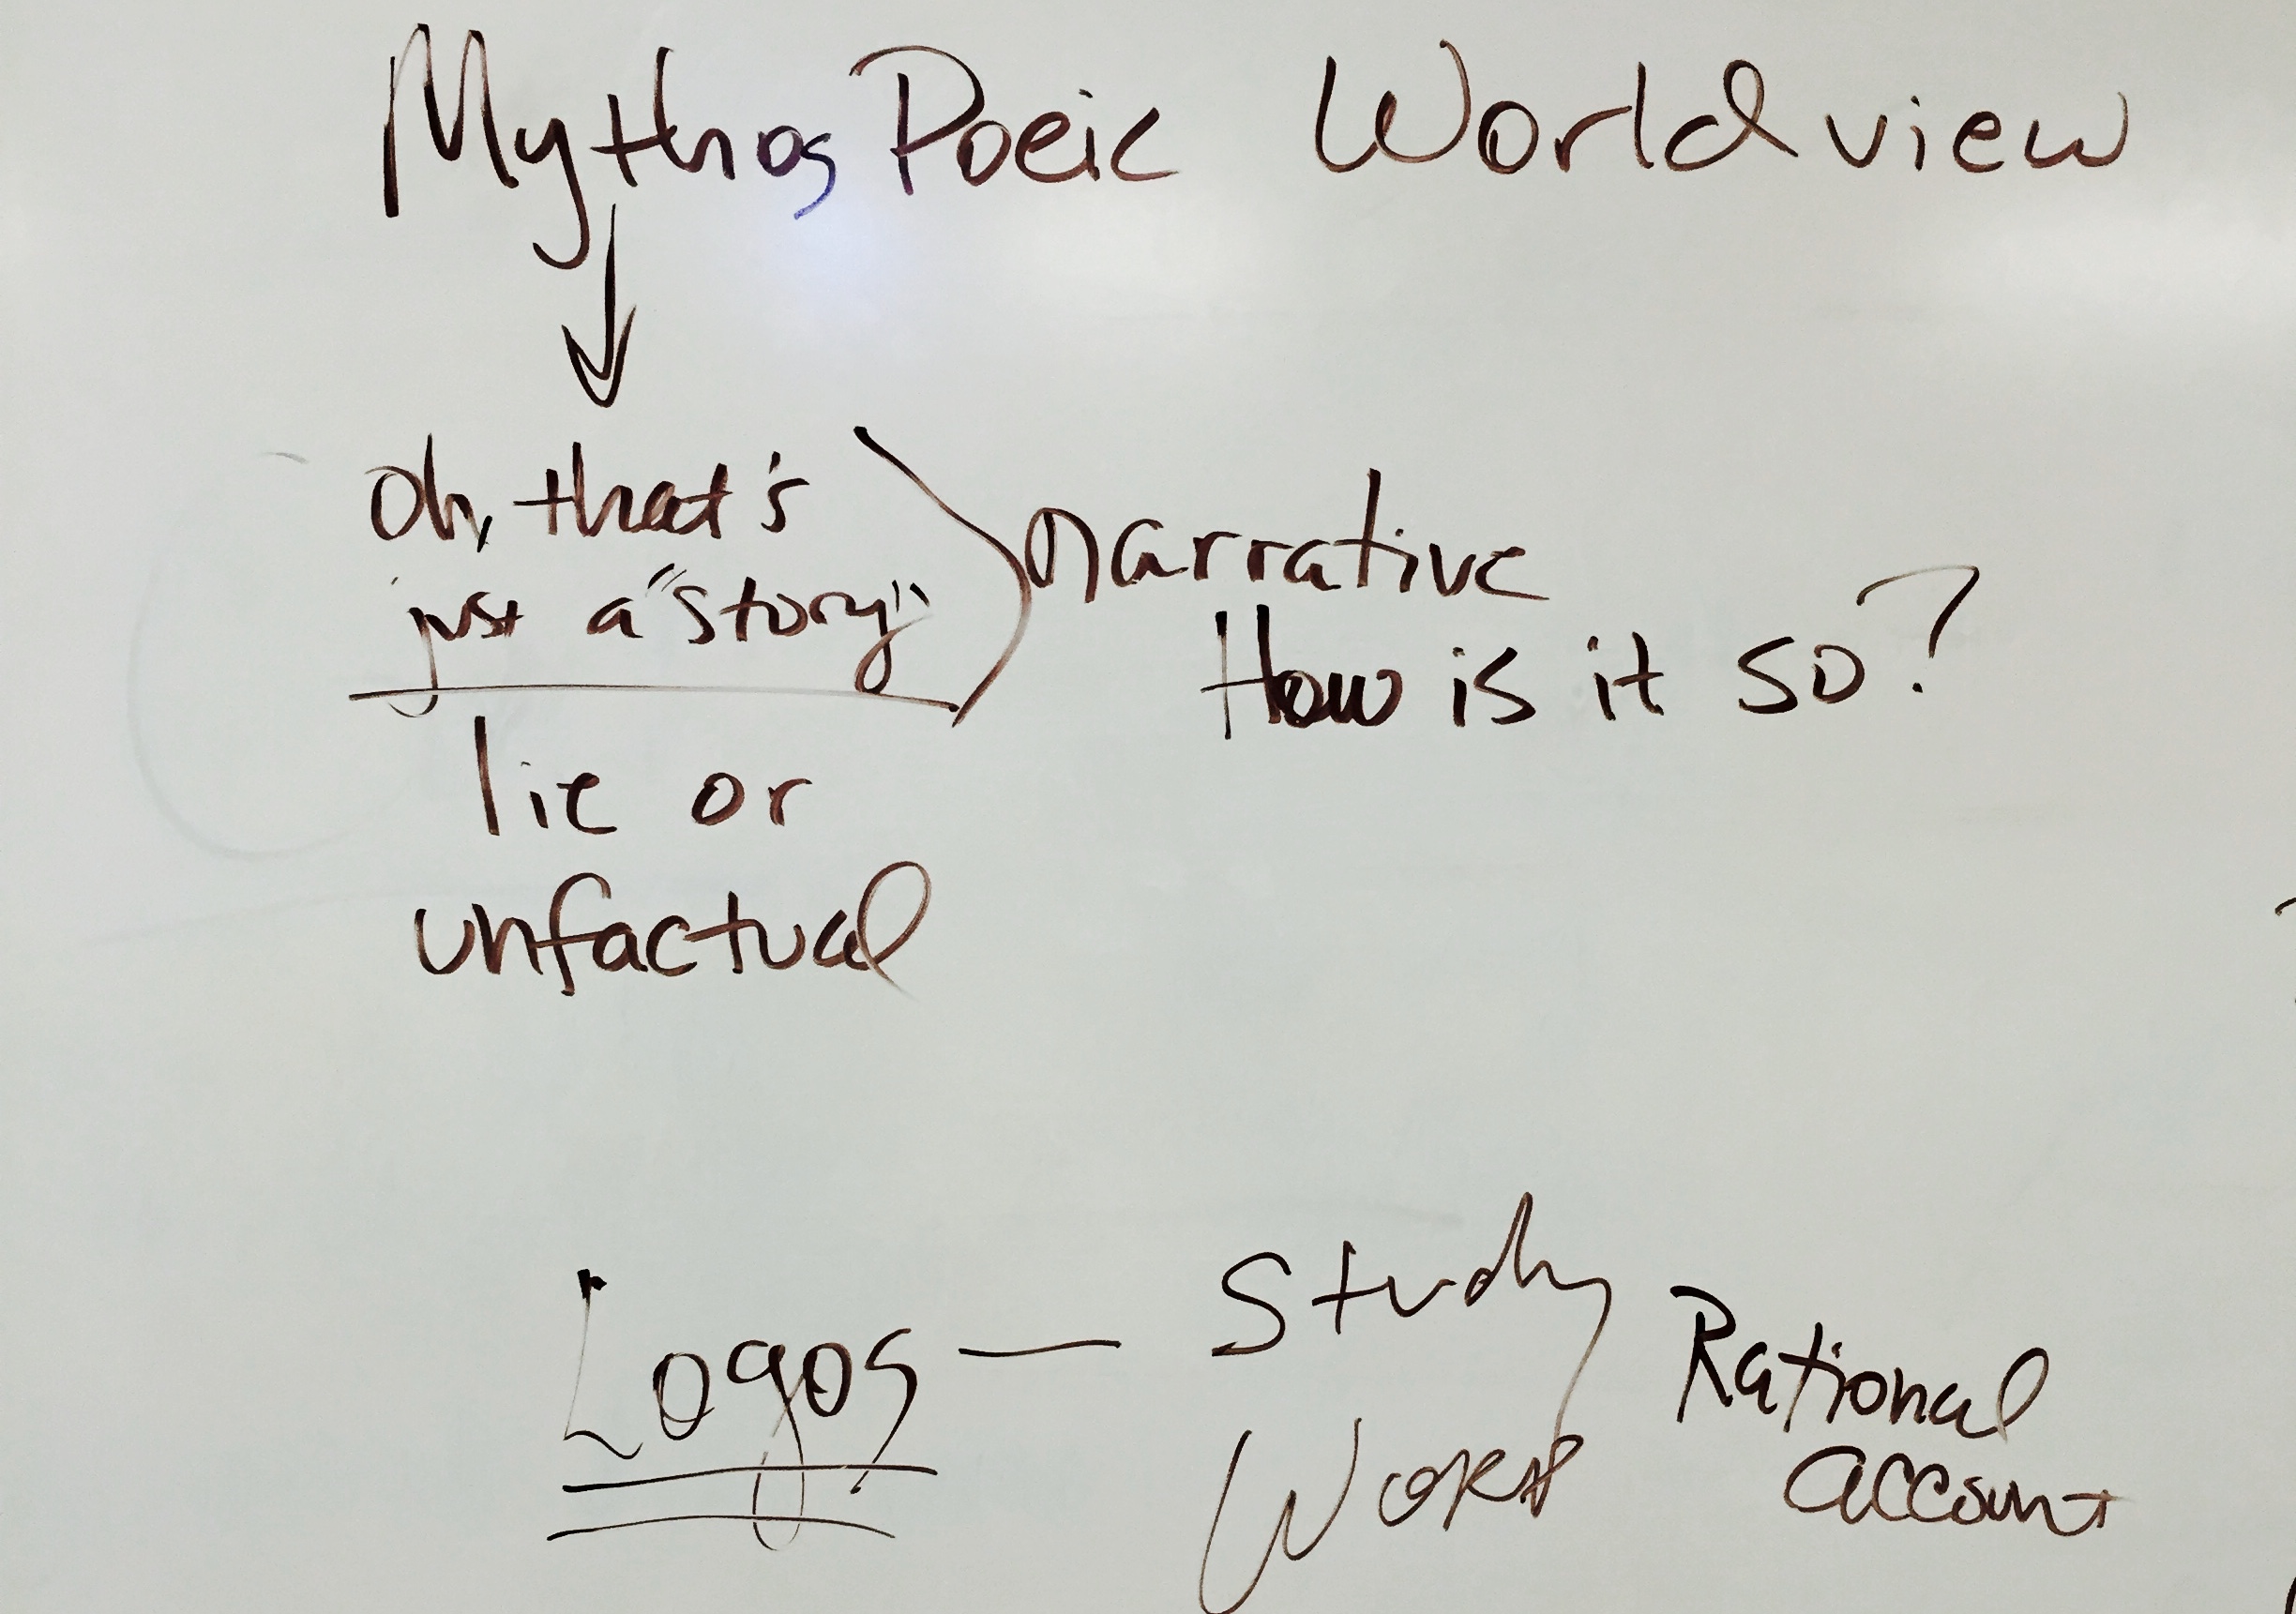 Mythos Poeic Worldview
Oh, that's
just a "story"
narrative
How is it so?
lie or
unfactual
Logos — Study
Rational
account